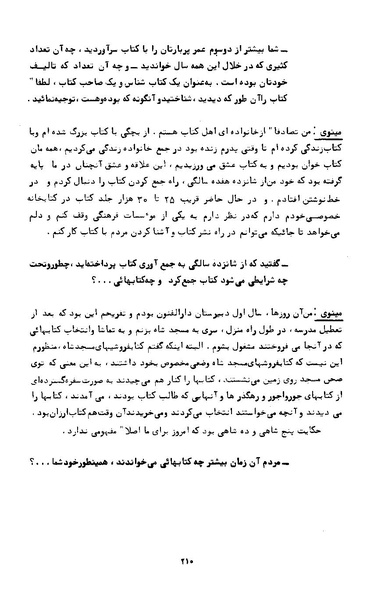 ــ شما بیشتر از دوسوم عمر پربارتان را با کتاب سرآوردید، چه آن تعداد
کثیری که در خلال این همه سال خواندید ــ و چه آن تعداد که تالیف
خودتان بوده است . به‌عنوان یک کتاب شناس و یک صاحب کتاب ، لطفا"
کتاب را آن طور که دیدید ، شناختید و آنگونه که بوده و هست، توجیه نمائید.
مینوی : من تصادفا" از خانواده‌ای اهل کتاب هستم . از بچگی با کتاب بزرگ شده ام وبا
کتاب زندگی کرده ام تا وقتی پدرم زنده بود در جمع خانواده زندگی می‌کردیم ، همه مان
کتاب خوان بودیم و به کتاب عشق می ورزیدیم ، این علاقه و عشق آنچنان در ما پایه
گرفته بود که خود من از شانزده هفده سالگی ، راه جمع کردن کتاب را دنبال کردم و در
خط نوشتن افتادم . و در حال حاضر قریب ۲۵ تا ۳۰ هزار جلد کتاب در کتابخانه
خصوصی‌خودم دارم که در نظر دارم به یکی از موسسات فرهنگی وقف کنم و دلم
می‌خواهد تا جائیکه می‌توانم در راه نشر کتاب و آشنا کردن مردم با کتاب کار کنم .
ــ گفتید که از شانزده سالگی به جمع آوری کتاب پرداخته‌اید ، چطور و تحت
چه شرایطی می‌شود کتاب جمع کرد و چه کتابهائی ...؟
مینوی : من آن روزها ، سال اول دبیرستان دارالفنون بودم و تفریحم این بود که بعد از
تعطیل مدرسه ، در طول راه منزل ، سری به مسجد شاه بزنم و به تماشا وانتخاب کتابهائی
که در آنجا می فروختند مشغول بشوم . البته اینکه گفتم کتابفروشیهای مسجد شاه ، منظورم
این نیست که کتابفروشهای مسجد شاه وضعی مخصوص بخود داشتند ، به این معنی که توی
صحن مسجد روی زمین می‌نشستند ، کتابها را کنار هم می‌چیدند به صورت سفره گسترده‌ای
از کتابهای جورواجور و رهگذر ها و آنهایی که طالب کتاب بودند ، می آمدند ، کتابها را
می دیدند و آنچه می‌خواستند انتخاب می‌کردند و می‌خریدند آن وقت هم کتاب ارزان بود .
حکایت پنج شاهی و ده شاهی بود که امروز برای ما اصلا" مفهومی ندارد .
ــ مردم آن زمان بیشتر چه کتابهائی می‌خواندند ، همینطور خود شما ...؟
۲۱۰